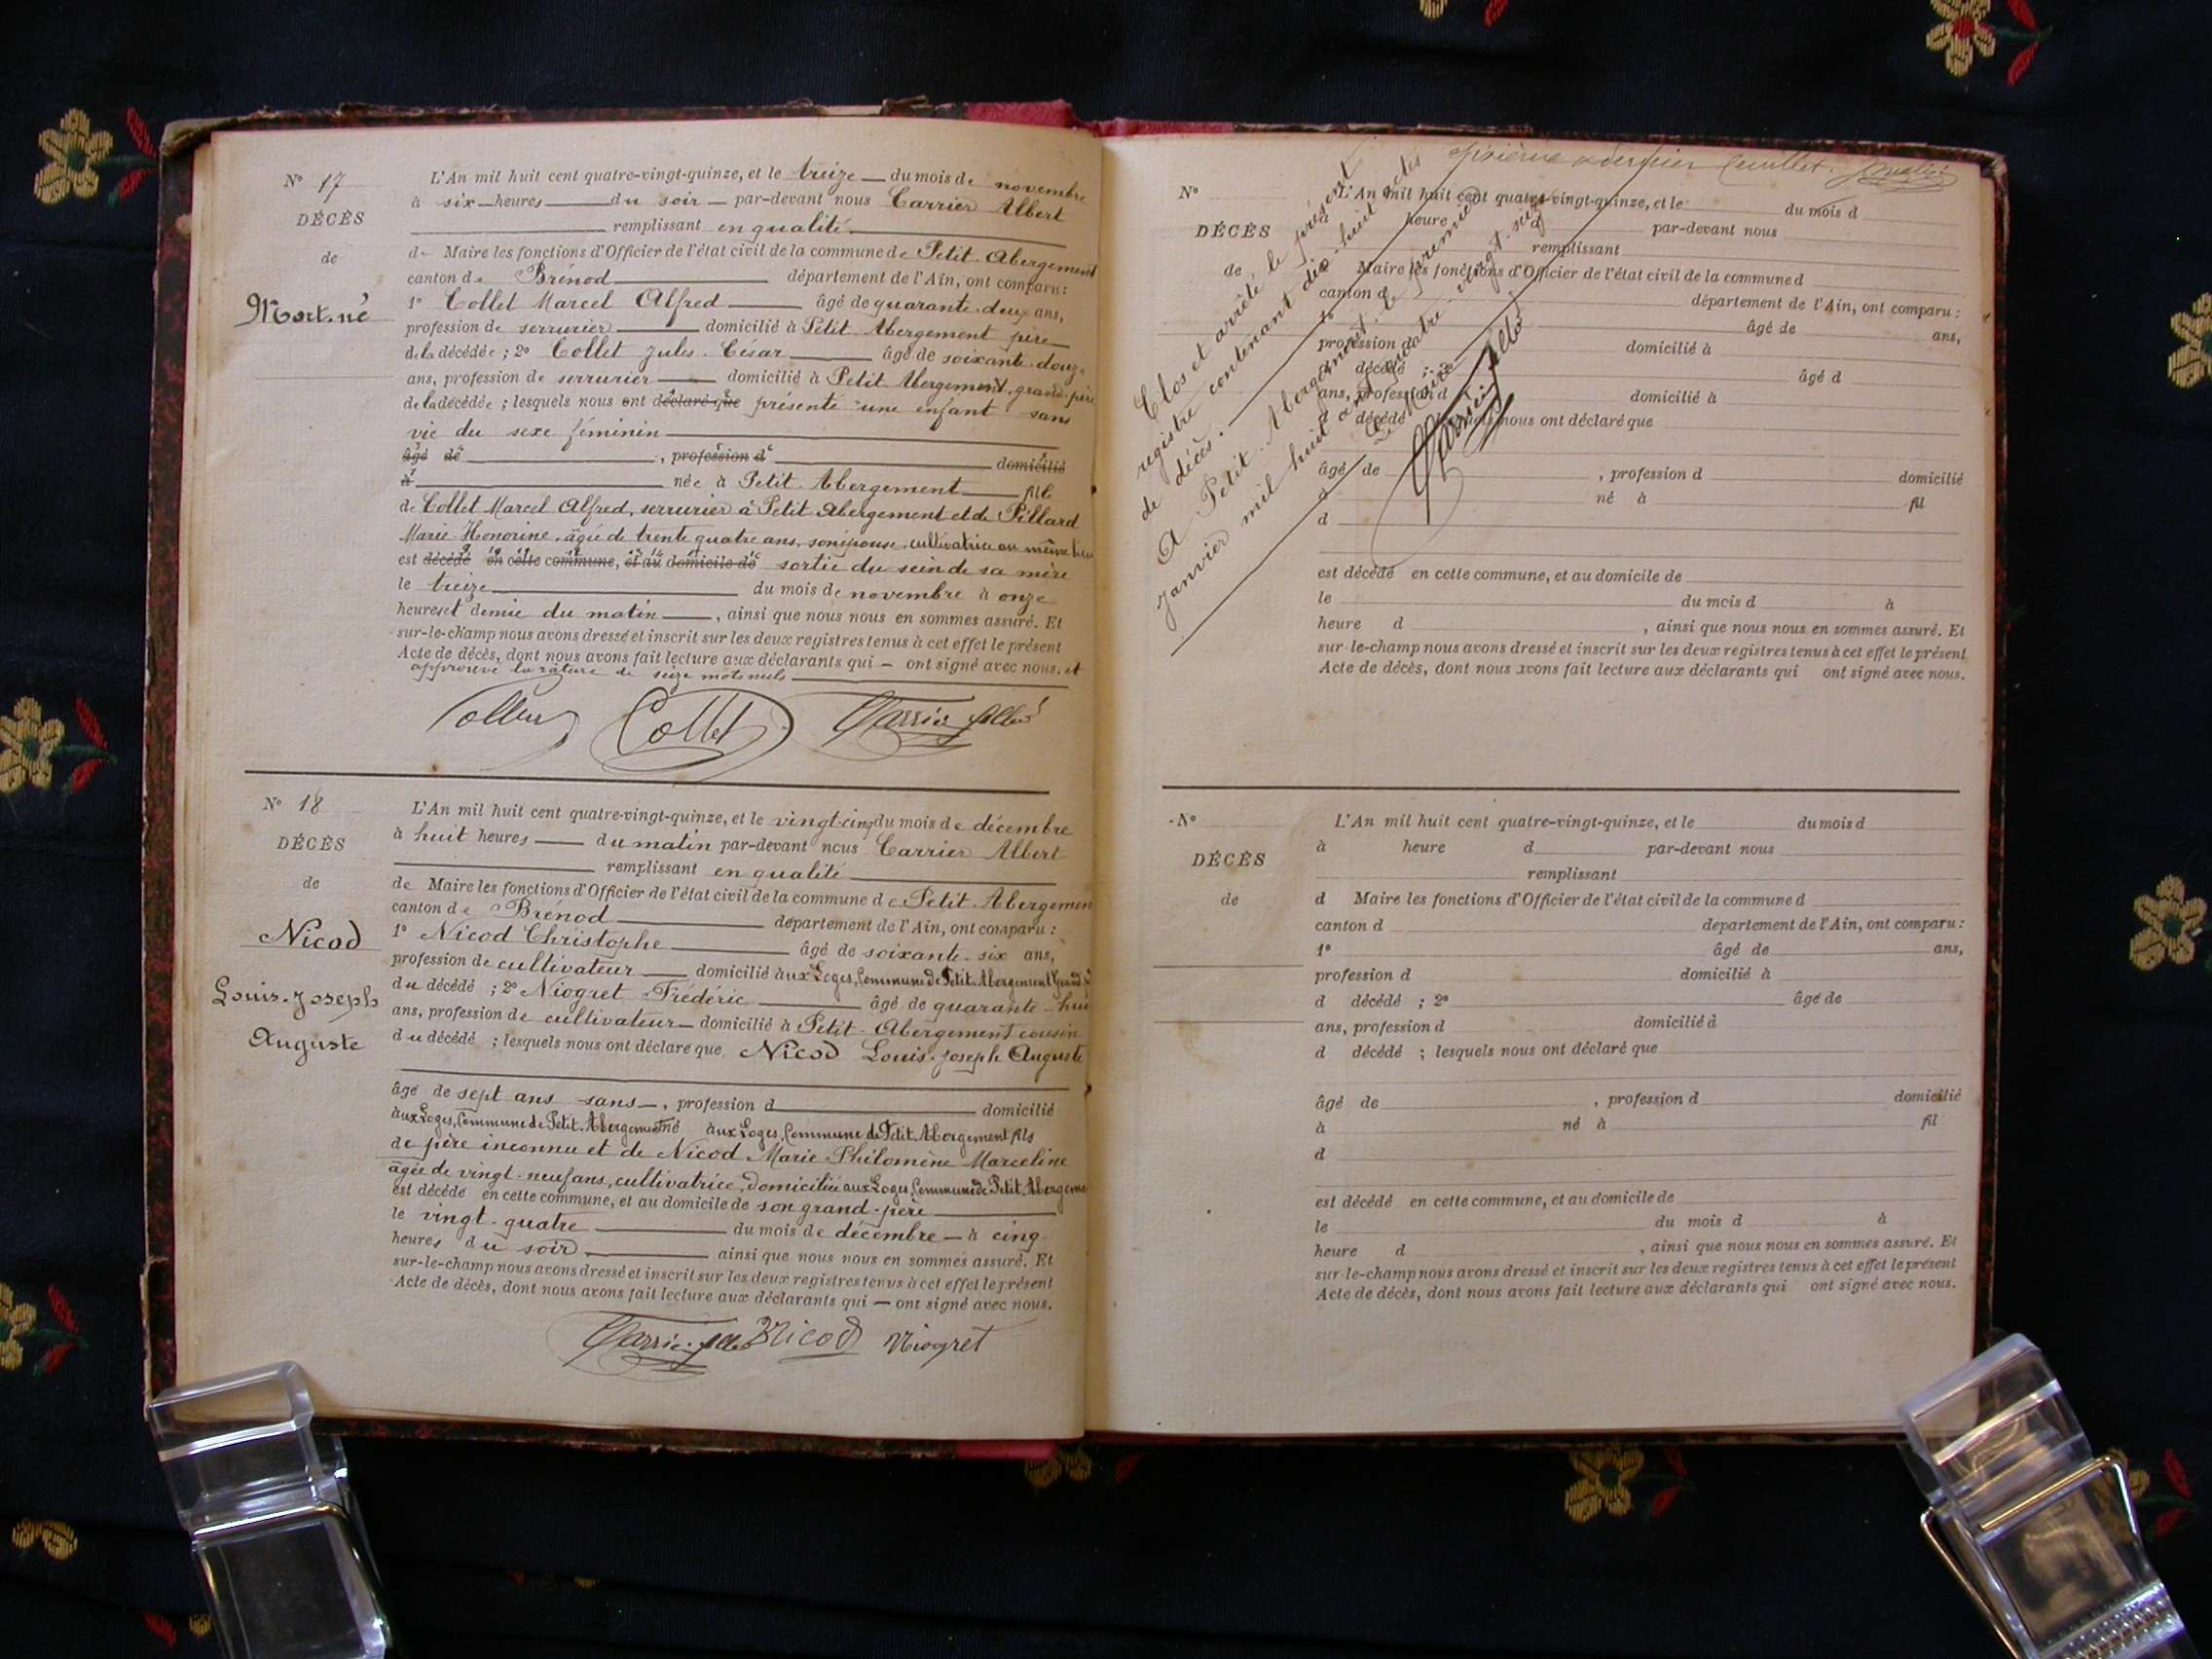 N° 17
DÉCÈS
de
Mort-né
L'An mil huit cent quatre-vingt-quinze, et le treize du mois de novembre
à six heures du soir par-devant nous Carrier Albert
remplissant en qualité
de Maire les fonctions d'Officier de l'état civil de la commune de Petit-Abergement
canton de Brénod département de l'Ain, ont comparu:
1° Collet Marcel Alfred âgé de quarante-deux ans,
profession de serrurier domicilié à Petit-Abergement père
de la décédée ; 2° Collet Jules-César âgé de soixante-douze
ans, profession de serrurier domicilié à Petit-Abergement, grand-père
de la décédée ; lesquels nous ont déclaré que présenté une enfant sans
vie du sexe féminin
âgé de , profession d domicilié
à née à Petit-Abergement fille
de Collet Marcel Alfred, serrurier à Petit-Abergement et de Pillard
Marie-Honorine, âgée de trente quatre ans, son épouse, cultivatrice au même lieu
est décédé en cette commune, et au domicile de sortie du sein de sa mère
le treize du mois de novembre à onze
heures et demie du matin , ainsi que nous nous en sommes assuré. Et
sur-le-champ nous avons dressé et inscrit sur les deux registres tenus à cet effet le présent
Acte de décès, dont nous avons fait lecture aux déclarants qui — ont signé avec nous. et
approuvé la rature de seize mots nuls
Collet Collet Carrier Albert
N° 18
DÉCÈS
de
Nicod
Louis-Joseph
Auguste
L'An mil huit cent quatre-vingt-quinze, et le vingt-cinq du mois de décembre
à huit heures du matin par-devant nous Carrier Albert
remplissant en qualité
de Maire les fonctions d'Officier de l'état civil de la commune de Petit-Abergement
canton de Brénod département de l'Ain, ont comparu :
1° Nicod Christophe âgé de soixante-six ans,
profession de cultivateur domicilié aux Loges, Commune de Petit-Abergement Grand-père
du décédé ; 2° Niogret Frédéric âgé de quarante-huit
ans, profession de cultivateur domicilié à Petit-Abergement cousin
du décédé ; lesquels nous ont déclaré que Nicod Louis-Joseph Auguste
âgé de sept ans sans , profession d domicilié
aux Loges, Commune de Petit-Abergement né aux Loges, Commune de Petit-Abergement fils
de père inconnu et de Nicod Marie-Philomène Marceline
âgée de vingt-neuf ans, cultivatrice, domiciliée aux Loges, Commune de Petit-Abergement
est décédé en cette commune, et au domicile de son grand-père
le vingt-quatre du mois de décembre à cinq
heures du soir ainsi que nous nous en sommes assuré. Et
sur-le-champ nous avons dressé et inscrit sur les deux registres tenus à cet effet le présent
Acte de décès, dont nous avons fait lecture aux déclarants qui — ont signé avec nous.
Carrier Albert Nicod Niogret
et dernier feuillet.
Clos et arrêté le présent
registre contenant dix-huit actes
de décès.
A Petit-Abergement, le premier
janvier mil huit cent quatre-vingt-seize
Le Maire
Carrier Albert
N°
DÉCÈS
de
L'An mil huit cent quatre-vingt-quinze, et le du mois d
à heure d par-devant nous
remplissant
d Maire les fonctions d'Officier de l'état civil de la commune d
canton d département de l'Ain, ont comparu :
1° âgé de ans,
profession d domicilié à
d décédé ; 2° âgé d
ans, profession d domicilié à
d décédé ; lesquels nous ont déclaré que
âgé de , profession d domicilié
à né à fil
d
est décédé en cette commune, et au domicile de
le du mois d à
heure d , ainsi que nous nous en sommes assuré. Et
sur-le-champ nous avons dressé et inscrit sur les deux registres tenus à cet effet le présent
Acte de décès, dont nous avons fait lecture aux déclarants qui ont signé avec nous.
N°
DÉCÈS
de
L'An mil huit cent quatre-vingt-quinze, et le du mois d
à heure d par-devant nous
remplissant
d Maire les fonctions d'Officier de l'état civil de la commune d
canton d departement de l'Ain, ont comparu :
1° âgé de ans,
profession d domicilié à
d décédé ; 2° âgé de
ans, profession d domicilié à
d décédé ; lesquels nous ont déclaré que
âgé de , profession d domicilié
à né à fil
d
est décédé en cette commune, et au domicile de
le du mois d à
heure d , ainsi que nous nous en sommes assuré. Et
sur-le-champ nous avons dressé et inscrit sur les deux registres tenus à cet effet le présent
Acte de décès, dont nous avons fait lecture aux déclarants qui ont signé avec nous.